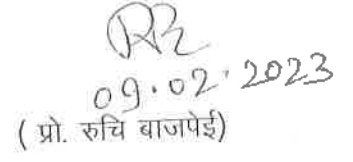 09.02.2023
( प्रो. रुचि बाजपेई)